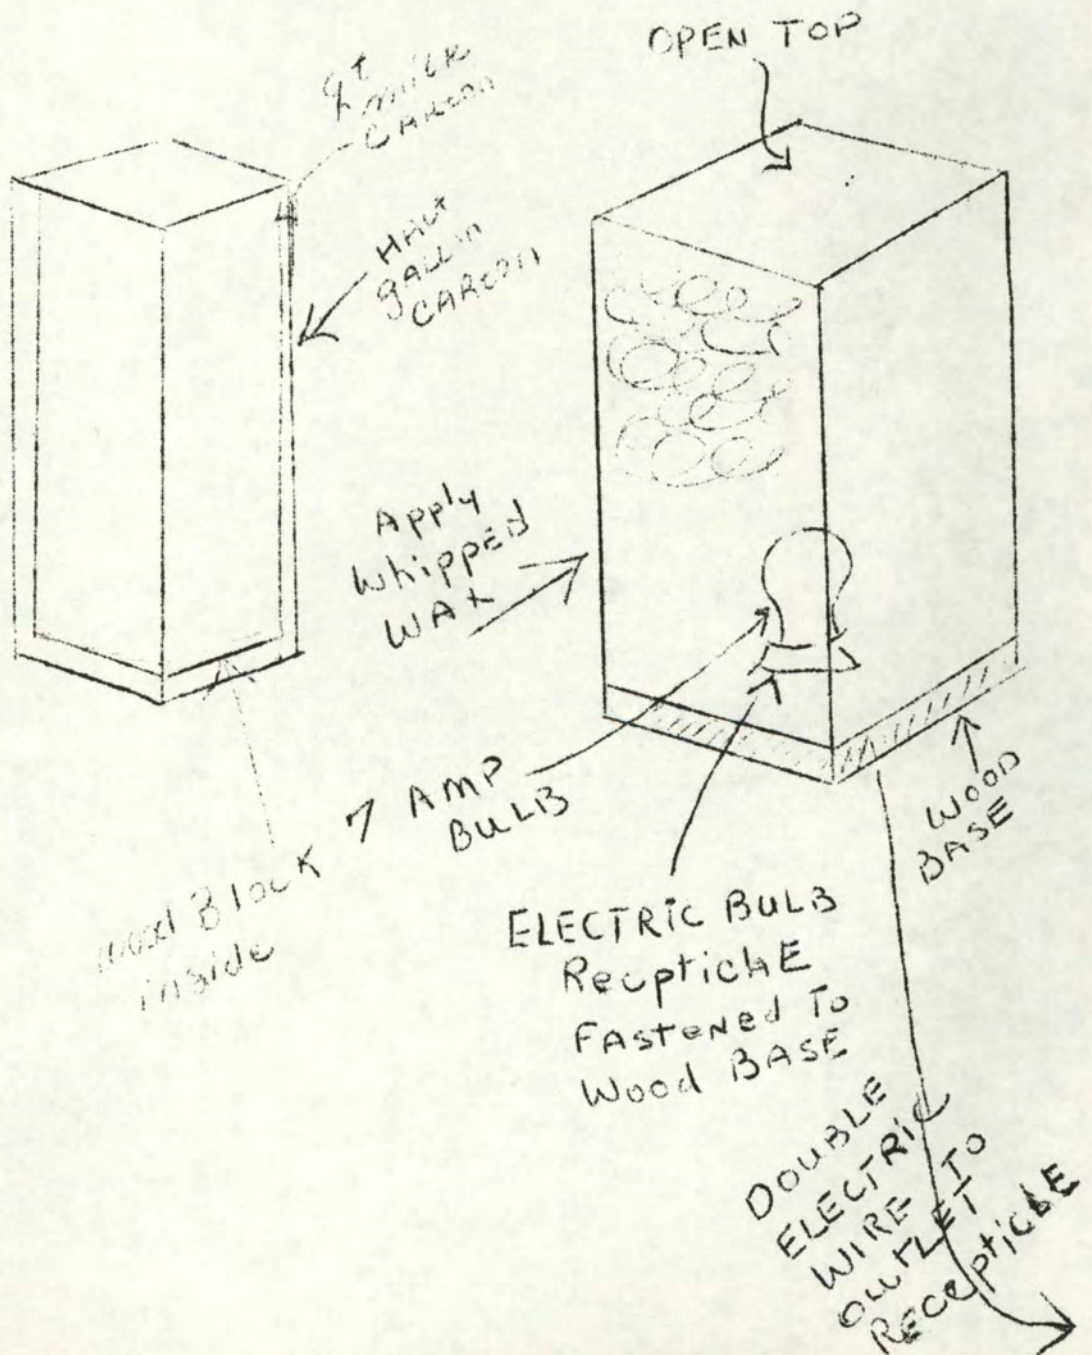 OPEN TOP
qt
milk
CARTON
HALF
gALLON
CARTON
Apply
Whipped
WAX
7 AMP
BULB
Wood Block
inside
WOOD
BASE
ELECTRIC BULB
RecpticlE
FAStened To
Wood BASE
DOUBLE
ELECTRIC
WIRE TO
OUTLET
RECEpticLE